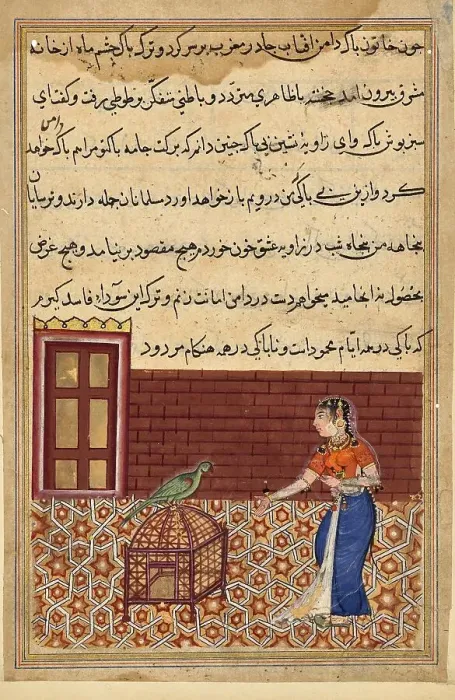 چون خاتون پاک دامن افتاب چادر مغرب بر سر کرد و ترک پاک چشم ماه از خانه
مشرق بیرون امد خجسته با ظاهری متردد و باطنی متفکر بر طوطی رفت و گفت ای
سبز پوش پاک وای زاویه نشین بی باک چنین دانم که برکت جامه پاک تو مرا هم پاک خواهد
دامن
کرد و ازین بی باکی من در ویم باز خواهد اورد مسلمانان چله دارند و ترسایان
پنجاهه من پنجاه شب در زاویه عشق خون خوردم هیچ مقصود بر نیامد و هیچ غرض
بحصول نه انجامید میخواهم دست در دامن امانت زنم و ترک این سودای فاسد گیرم
که پاکی در همه ایام محمود است و ناپاکی در همه هنکام مردود